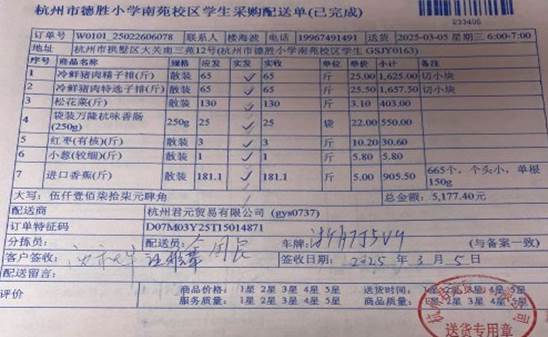 杭州市德胜小学南苑校区学生采购配送单(已完成)
订单号 W0101_25022606078 联系人 楼海波 电话 19967491491 送货 2025-03-05 星期三 6:00-7:00
地址 杭州市拱墅区大关南三苑12号(杭州市德胜小学南苑校区学生 GSJY0163)
序号 商品名称 规格 应发 实发 实收 单位 单价 小计 备注
1 冷鲜猪肉精子排(斤) 散装 65 65 斤 25.00 1,625.00 切小块
2 冷鲜猪肉特选子排(斤) 散装 65 65 斤 25.50 1,657.50 切小块
3 松花菜(斤) 散装 130 130 斤 3.10 403.00
4 袋装万隆杭味香肠(250g) 250g 25 25 袋 22.00 550.00
5 红枣(有核)(斤) 散装 3 3 斤 10.20 30.60
6 小葱(较细)(斤) 散装 1 1 斤 5.80 5.80
7 进口香蕉(斤) 散装 181.1 181.1 斤 5.00 905.50 665个，个头小，单根150g
大写：伍仟壹佰柒拾柒元肆角 总金额：5,177.40元
配送商 杭州君元贸易有限公司 (gys0737)
订单特征码 D07M03Y25T15014871
分拣员： 配送员： 车牌： (与备案一致)
客户签收 签收日期：2025年3月5日
配送留言：
评价 商品价格：1星 2星 3星 4星 5星 送货时间：1星 2星 3星 4星 5星
服务质量：1星 2星 3星 4星 5星
送货专用章